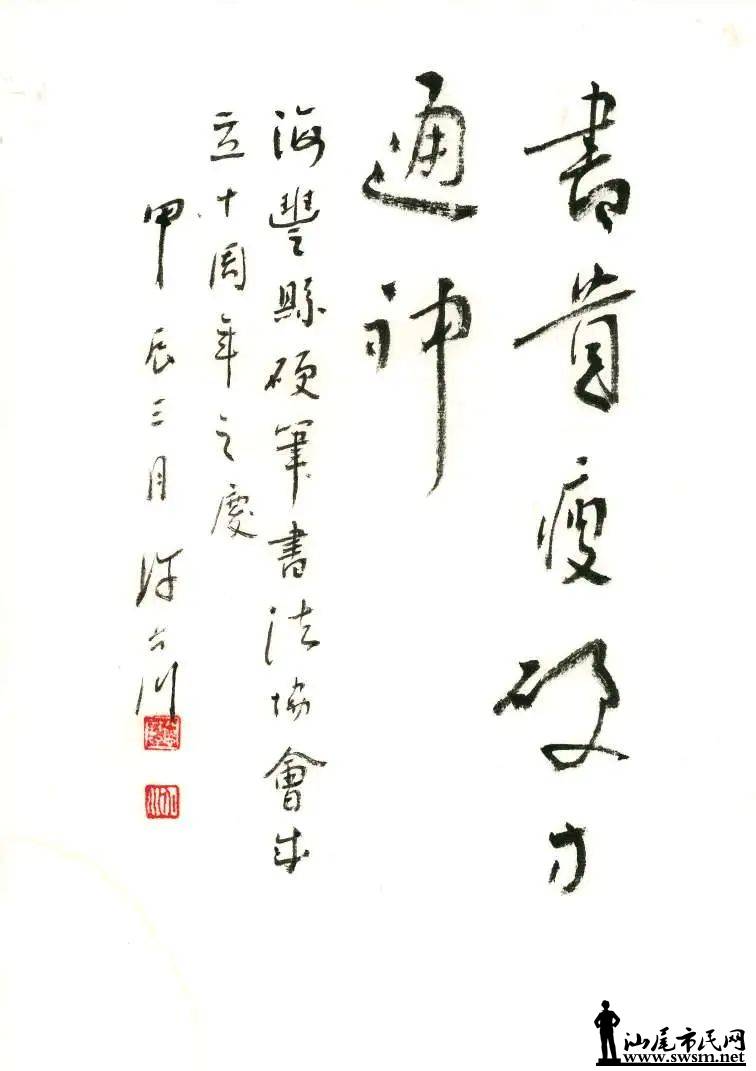 書貴瘦硬方
通神
海豐縣硬筆書法協會成
立十周年之慶
甲辰三月
汕尾市民网
www.swsm.net